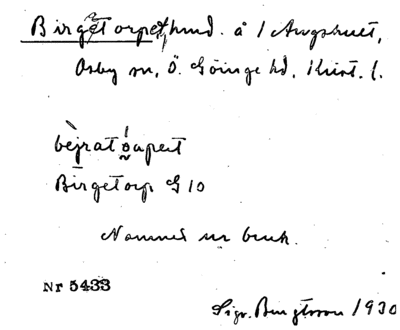 Birgetorpet, hmd. å 1 Angshult,
Osby sn, Ö. Göinge hd, Krist. l.
Birgetorp G 10
Namnet ur bruk.
Nr 5433
Sigv. Bengtsson 1930